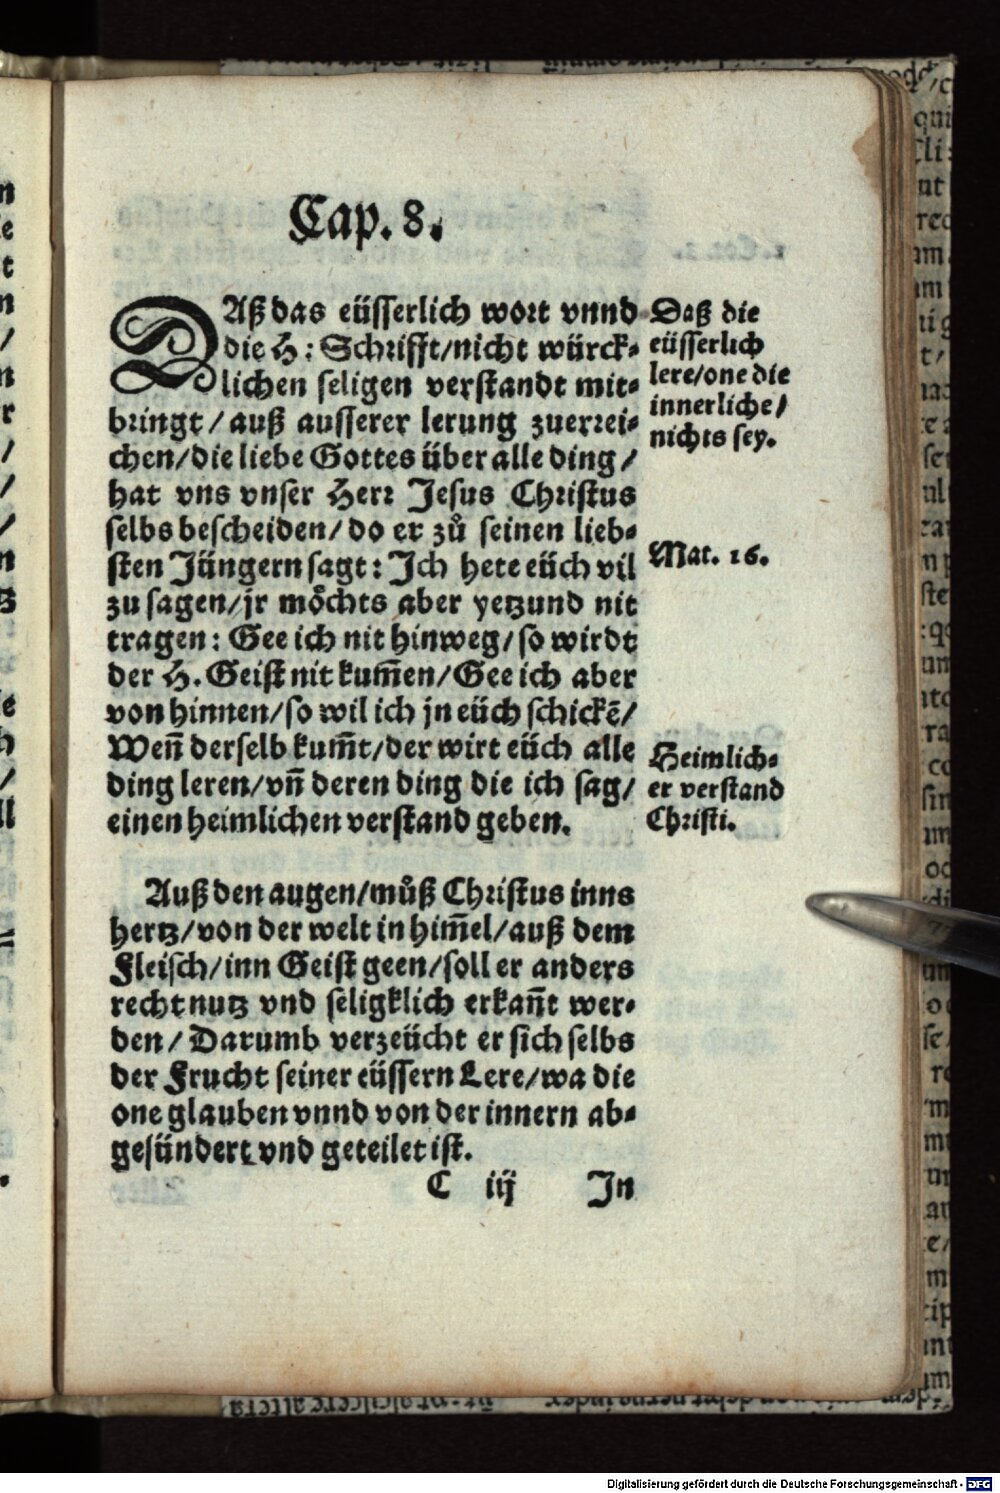 Cap. 8.
DAß das eüsserlich wort vnnd
die H: Schrifft/nicht würck⸗
lichen seligen verstandt mit⸗
bringt/auß ausserer lerung zuerrei⸗
chen/die liebe Gottes über alle ding/
hat vns vnser Herr Jesus Christus
selbs bescheiden/do er zů seinen lieb⸗
sten Jüngern sagt: Ich hete eüch vil
zu sagen/jr möchts aber yetzund nit
tragen: Gee ich nit hinweg/so wirdt
der H. Geist nit kum̄en/Gee ich aber
von hinnen/so wil ich jn eüch schickē/
Wen̄ derselb kum̄t/der wirt eüch alle
ding leren/vn̄ deren ding die ich sag/
einen heimlichen verstand geben.
Daß die
eüsserlich
lere/one die
innerliche/
nichts sey.
Mat. 16.
Heimlich⸗
er verstand
Christi.
Auß den augen/můß Christus inns
hertz/von der welt in him̄el/auß dem
Fleisch/inn Geist geen/soll er anders
recht nutz vnd seligklich erkan̄t wer⸗
den/Darumb verzeücht er sich selbs
der Frucht seiner eüssern Lere/wa die
one glauben vnnd von der innern ab⸗
gesündert vnd geteilet ist.
C iij In
Digitalisierung gefördert durch die Deutsche Forschungsgemeinschaft - DFG